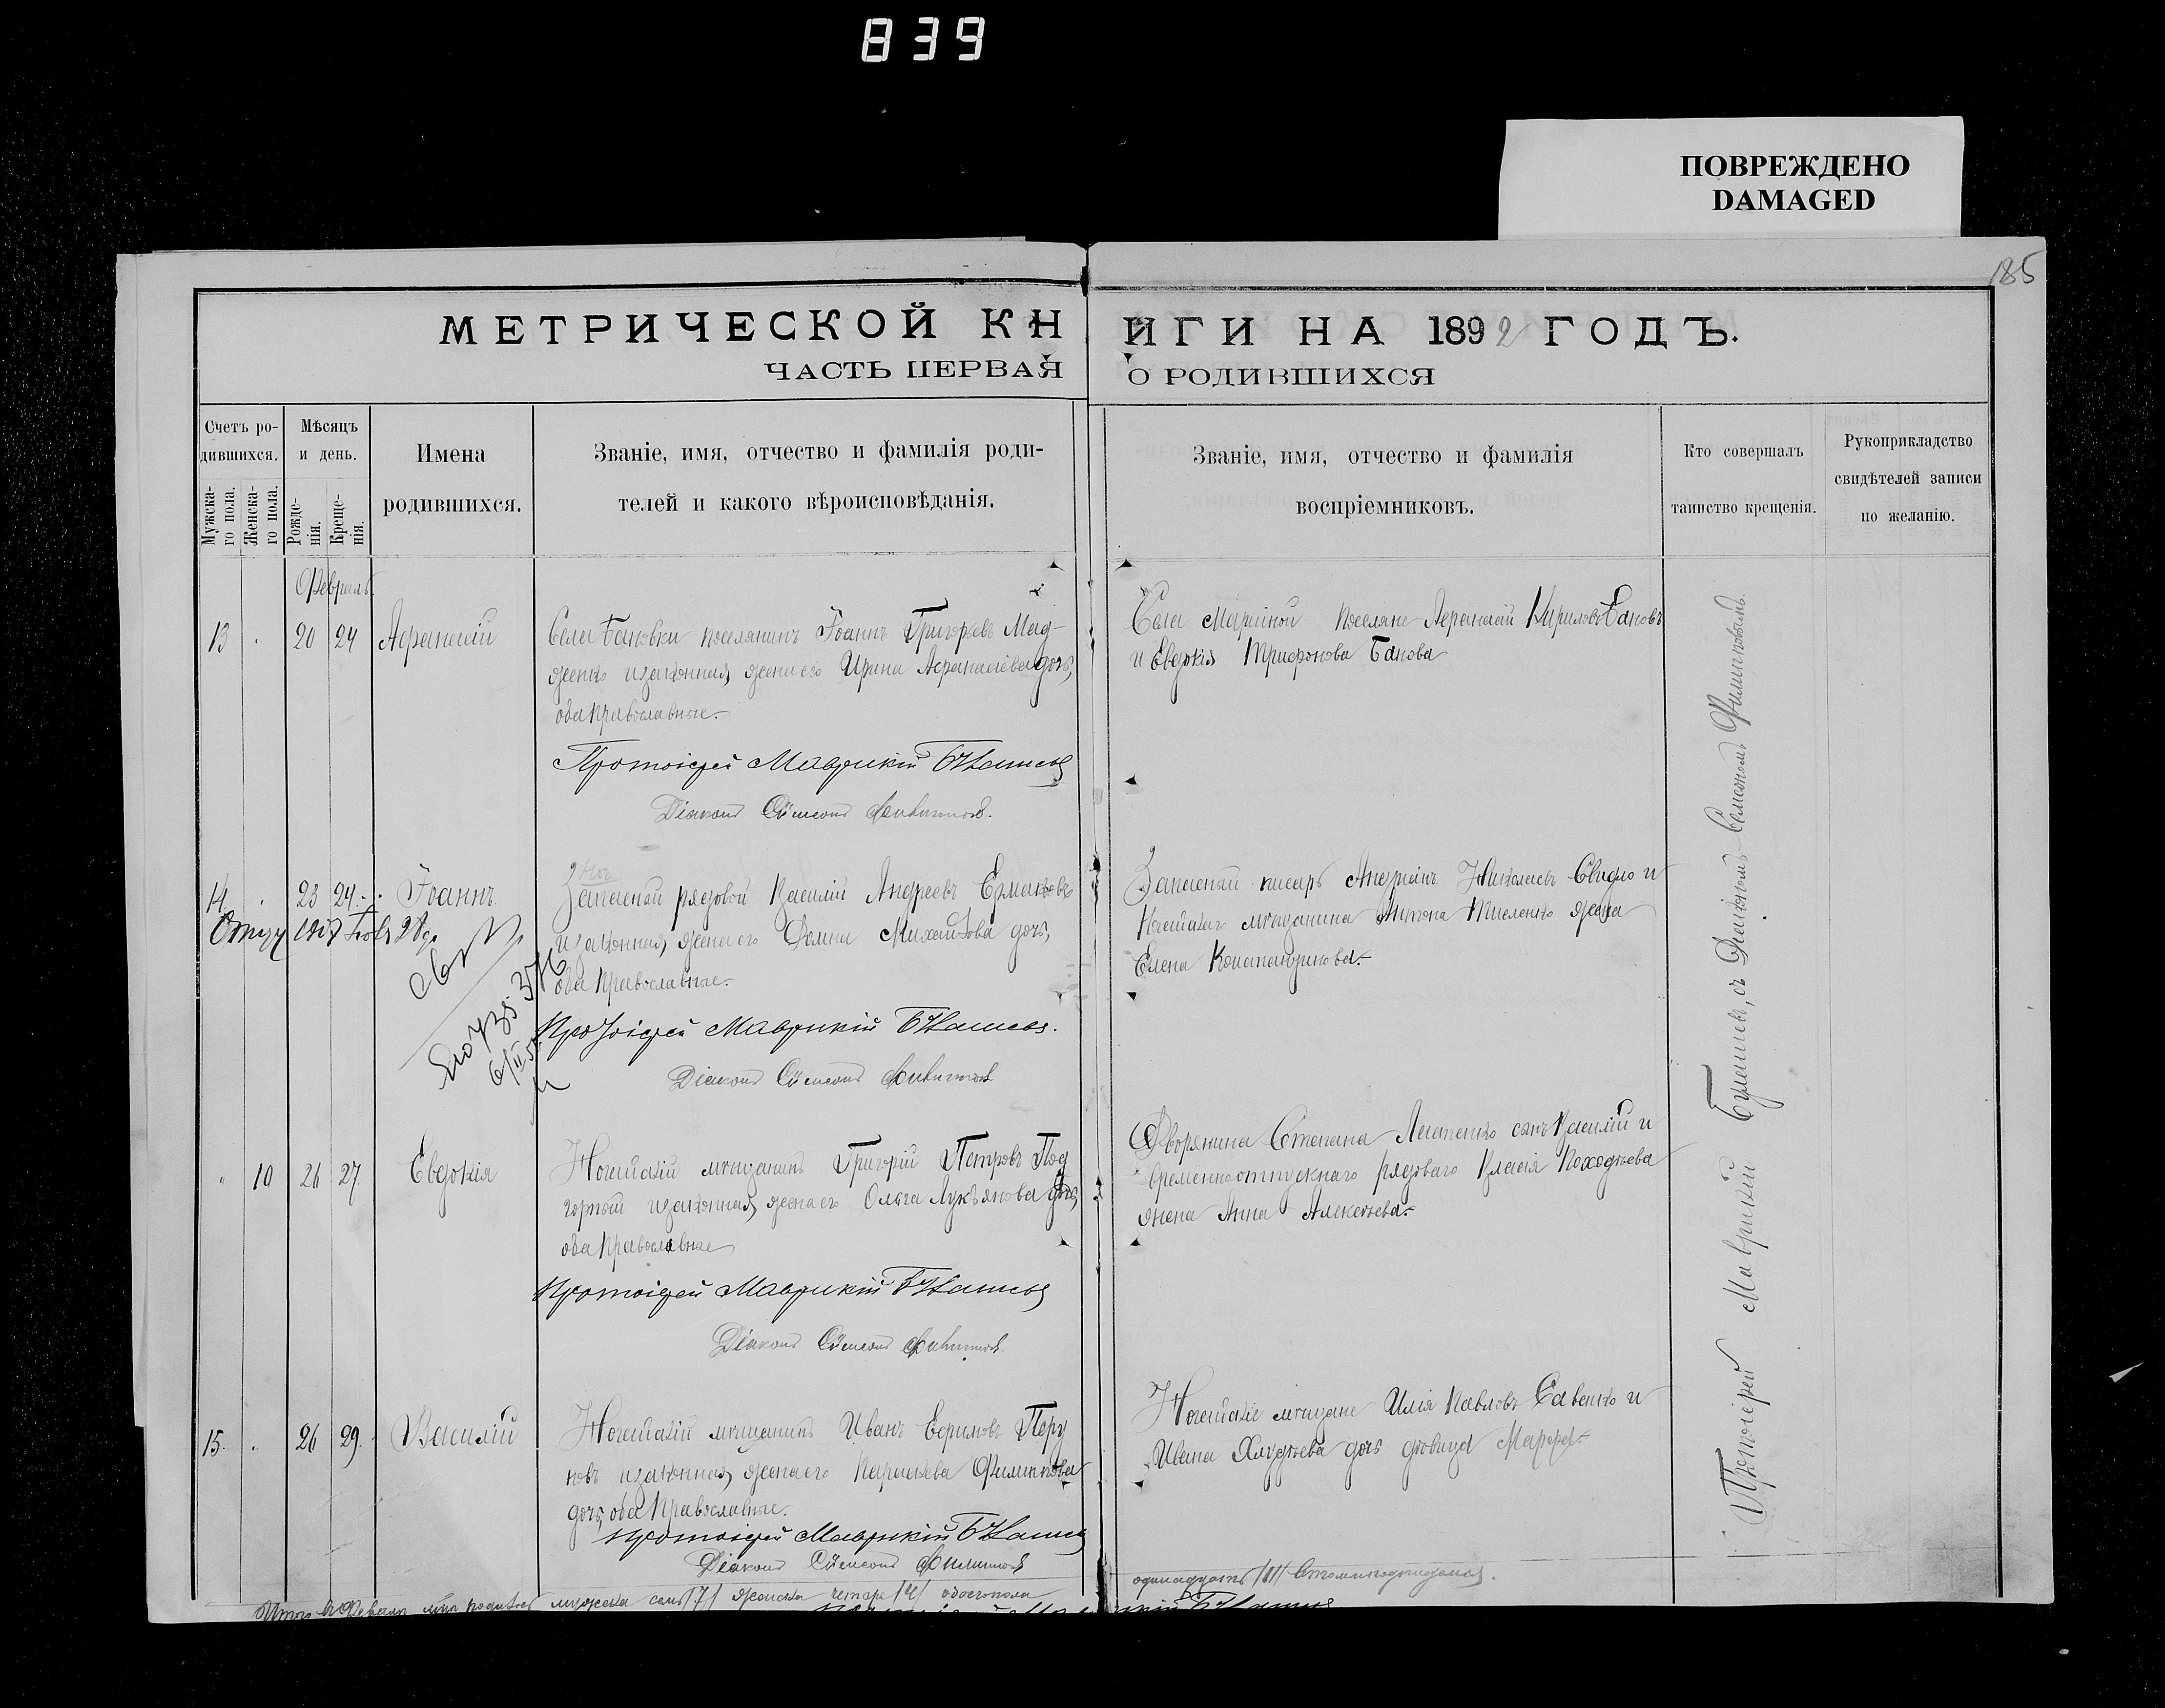 839
ПОВРЕЖДЕНО
DAMAGED
185
МЕТРИЧЕСКОЙ КНИГИ НА 1892 ГОДЪ.
ЧАСТЬ ПЕРВАЯ О РОДИВШИХСЯ
Счетъ родившихся.
Мужскаго пола.
Женскаго пола.
Мѣсяцъ и день.
Рожденія.
Крещенія.
Имена родившихся.
Званіе, имя, отчество и фамилія родителей и какого вѣроисповѣданія.
Званіе, имя, отчество и фамилія воспріемниковъ.
Кто совершалъ таинство крещенія.
Рукоприкладство свидѣтелей записи по желанію.
Февраль
13 20 24 Афанасій
Села Бановки поселянинъ Іоаннъ Григорьевъ Мад-
женко и законная жена его Ирина Афанасіева дочь,
оба православные.
Протоіерей Маврикій
Діаконъ Сѵмеонъ Филипповъ.
Села Маріиной поселяне Афанасій Кириловъ Бановъ
и Евдокія Трифонова Банова
14 23 24 Іоаннъ
Запасный рядовой Василій Андреевъ Ермаковъ
и законная жена его Домна Михайлова дочь,
оба православные.
Протоіерей Маврикій
Діаконъ Сѵмеонъ Филипповъ
Запасный писарь Андріанъ Николаевъ Свидло и
Ногайскаго мѣщанина Антона жена
Елена
10 26 27 Евдокія
Ногайскій мѣщанинъ Григорій Петровъ Под
горный и законная жена его Ольга Лукьянова дочь,
оба православные
Протоіерей Маврикій
Діаконъ Сѵмеонъ Филипповъ.
Дворянина Степана сынъ Василій и
временноотпускнаго рядоваго Власія
жена Анна Алексѣева.
15. 26 29. Василій
Ногайскій мѣщанинъ Иванъ Ефимовъ Перу
новъ и законная жена его Параскева Филиппова
дочь, оба православные.
Протоіерей Маврикій
Діаконъ Сѵмеонъ Филипповъ
Ногайскіе мѣщане Илія Павловъ Савенко и
Ивана дочь дѣвица Марфа.
Протоіерей Маврикій съ Діакономъ Филипповымъ.
Итого въ Февралѣ мѣсяцѣ родилось мужска семь /7/ женска четыре /4/ обоего пола
одинадцать /11/